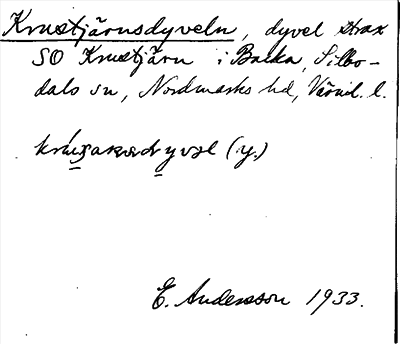 Krustjärnsdyveln, dyvel strax
SO Krustjärn i Backa, Silbo-
dals sn, Nordmarks hd, Värml. l.
(y.)
E. Andersson 1933.